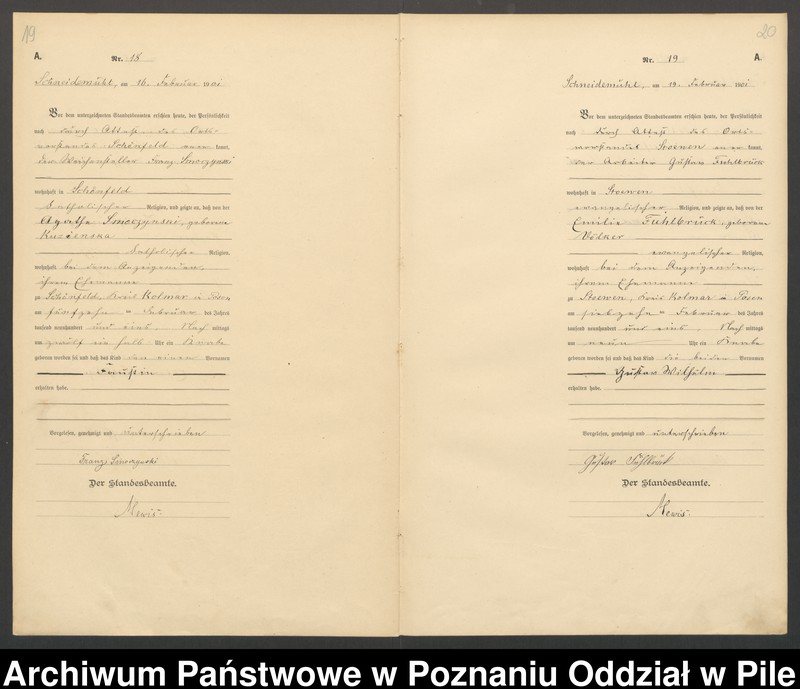 19
A.
Nr. 18
Schneidemühl, am 16. Februar 1901
Vor dem unterzeichneten Standesbeamten erschien heute, der Persönlichkeit
nach durch Attest des Orts-
vorstandes Schönfeld anerkannt,
der Weichensteller Franz Smoczynski
wohnhaft in Schönfeld
katholischer Religion, und zeigte an, daß von der
Agathe Smoczynski, geborene
katholischer Religion,
wohnhaft bei dem Anzeigenden,
ihrem Ehemanne
zu Schönfeld, Kreis Kolmar i. Posen
am fünfzehn = Februar des Jahres
tausend neunhundert und eins, Nach mittags
um zwölf ein halb Uhr ein Knabe
geboren worden sei und daß das Kind den einen Vornamen
Faustin
erhalten habe.
Vorgelesen, genehmigt und unterschrieben
Franz Smoczynski
Der Standesbeamte.
Mewis.
20
A.
Nr. 19
Schneidemühl, am 19. Februar 1901
Vor dem unterzeichneten Standesbeamten erschien heute, der Persönlichkeit
nach durch Attest des Orts-
vorstandes Stoewen anerkannt,
der Arbeiter Gustav Fuhlbrück
wohnhaft in Stoewen
evangelischer Religion, und zeigte an, daß von der
Emilie Fuhlbrück, geborene
Völker
evangelischer Religion,
wohnhaft bei dem Anzeigenden,
ihrem Ehemanne
zu Stoewen, Kreis Kolmar i. Posen
am siebzehn = Februar des Jahres
tausend neunhundert und eins, Nach mittags
um neun Uhr ein Knabe
geboren worden sei und daß das Kind die beiden Vornamen
Gustav Wilhelm
erhalten habe.
Vorgelesen, genehmigt und unterschrieben
Gustav
Der Standesbeamte.
Mewis.
Archiwum Państwowe w Poznaniu Oddział w Pile